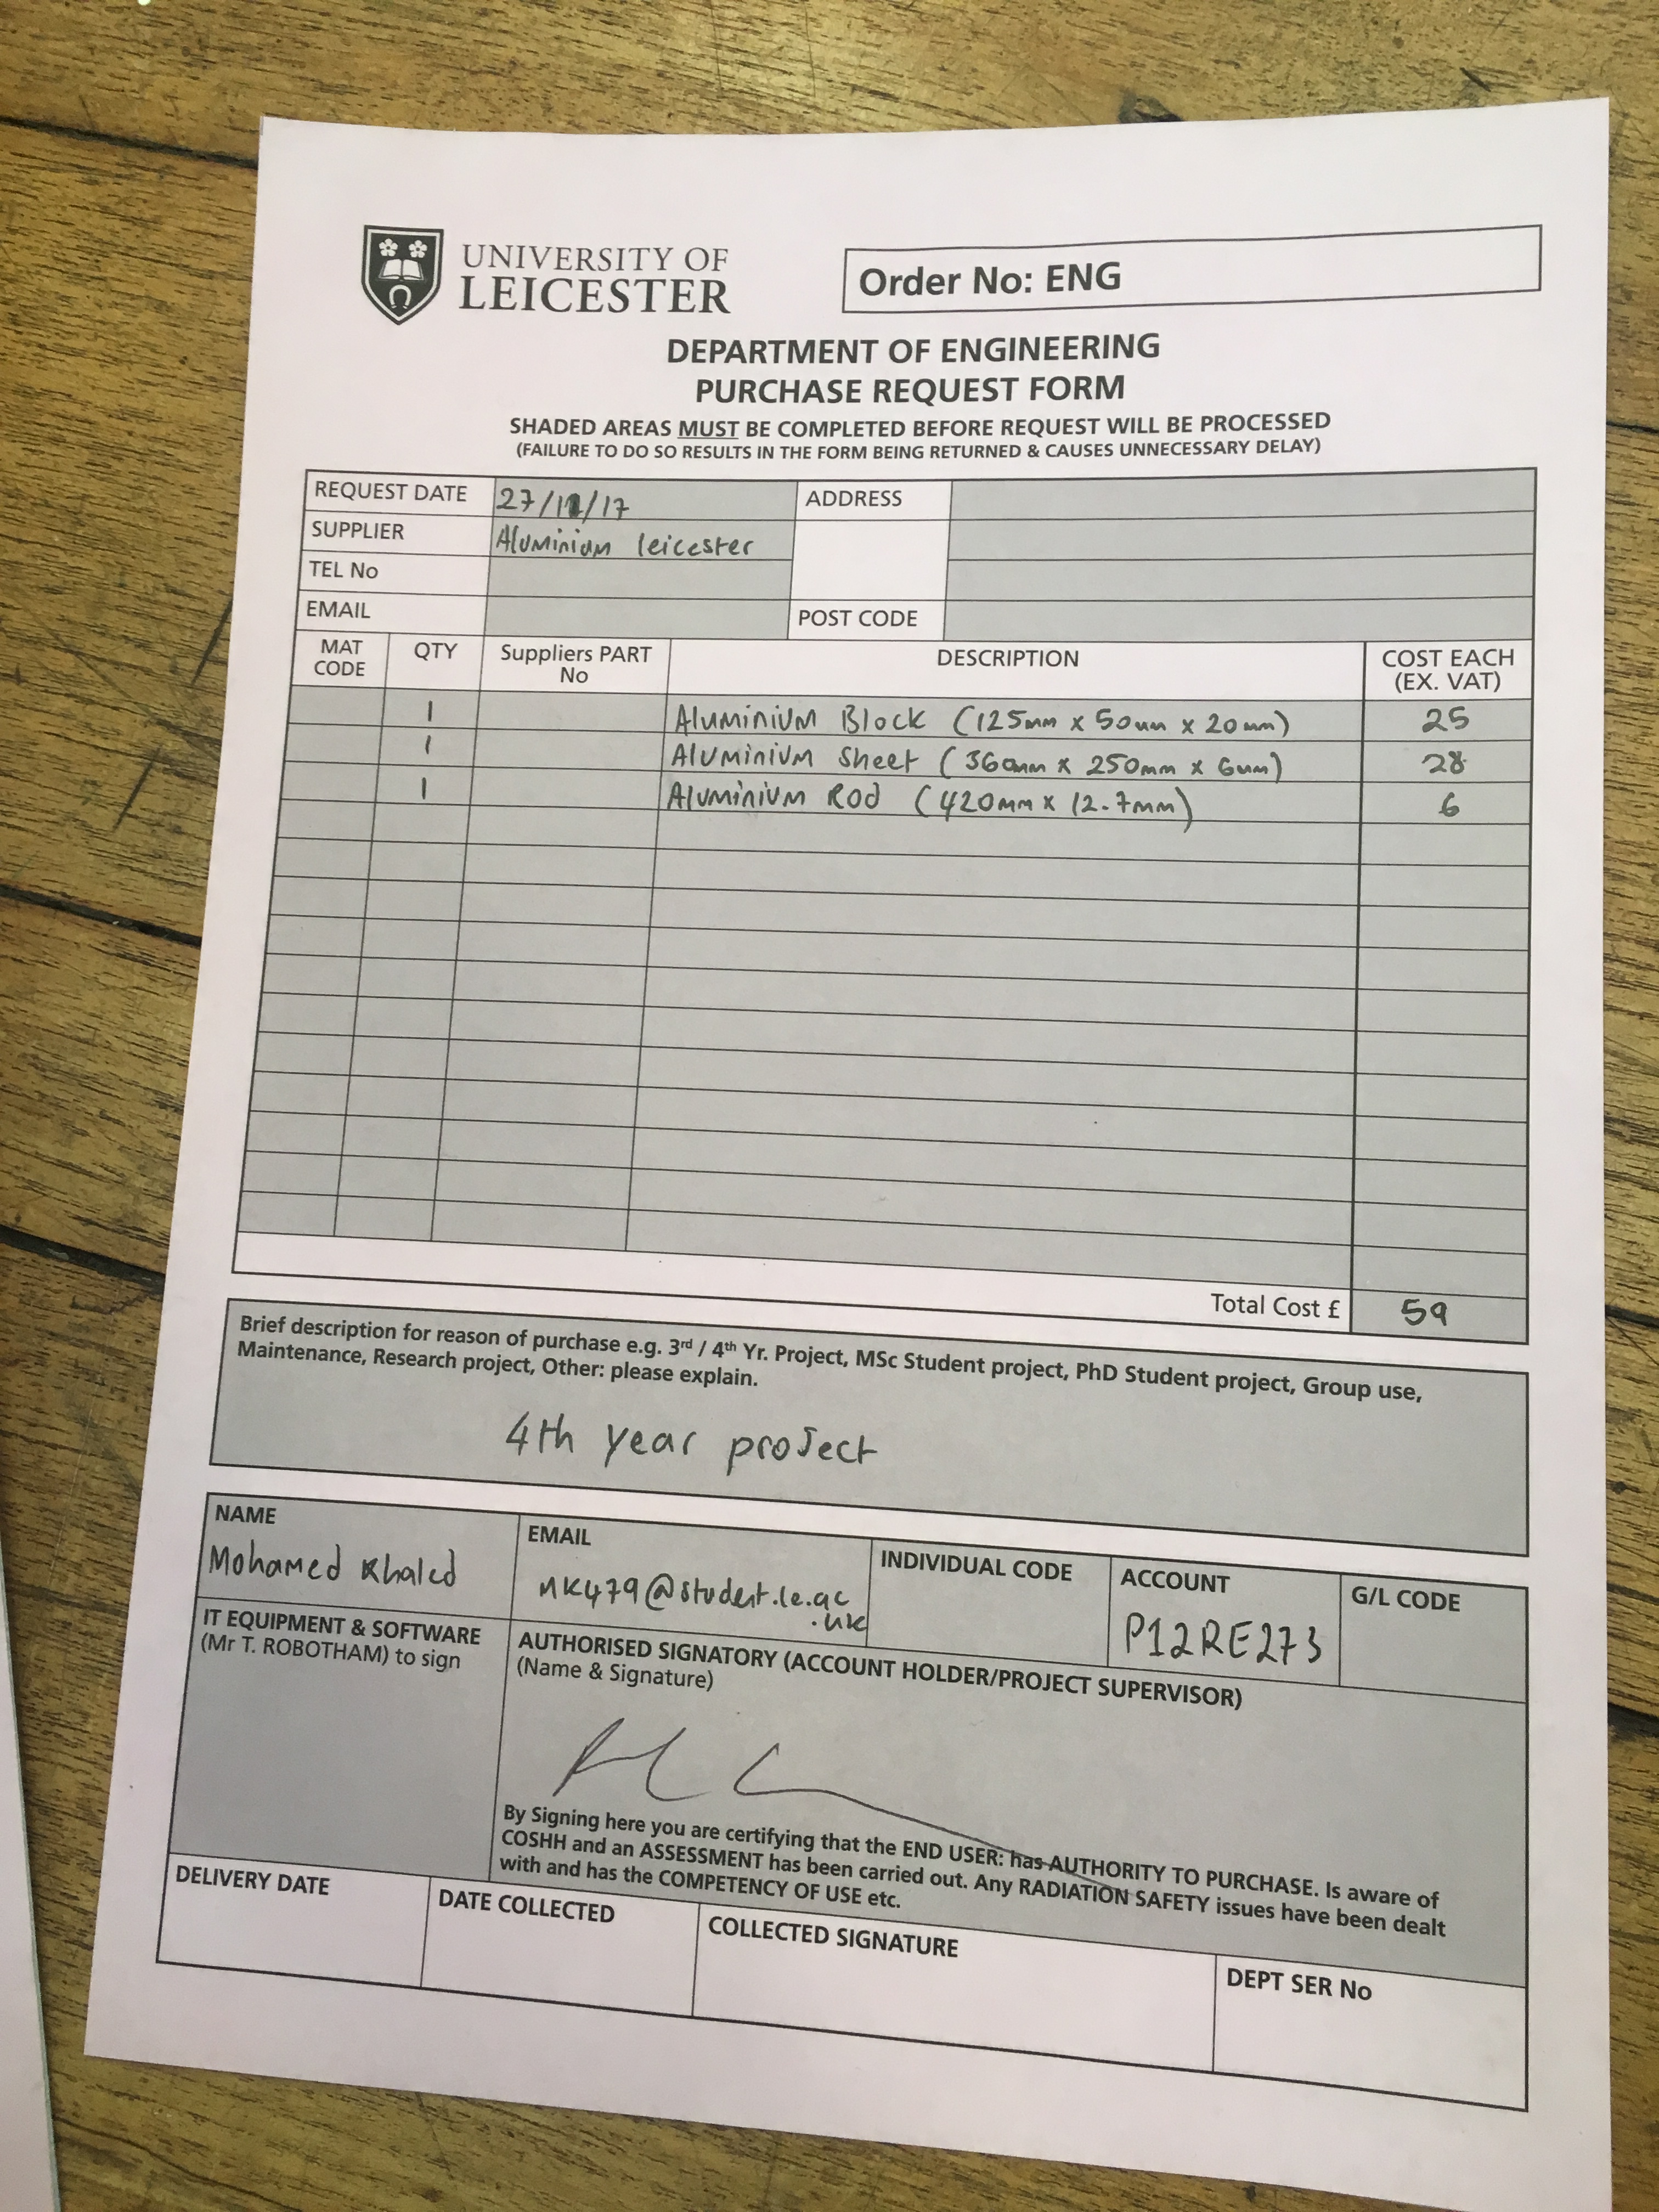 UNIVERSITY OF
LEICESTER
Order No: ENG
DEPARTMENT OF ENGINEERING
PURCHASE REQUEST FORM
SHADED AREAS MUST BE COMPLETED BEFORE REQUEST WILL BE PROCESSED
(FAILURE TO DO SO RESULTS IN THE FORM BEING RETURNED & CAUSES UNNECESSARY DELAY)
REQUEST DATE ADDRESS
SUPPLIER Aluminium leicester
TEL No
EMAIL POST CODE
MAT CODE QTY Suppliers PART No DESCRIPTION COST EACH (EX. VAT)
1 Aluminium Block (125mm x 50mm x 20mm) 25
1 Aluminium Sheet (360mm x 250mm x 6mm) 28
1 Aluminium Rod (420mm x 12.7mm) 6
Total Cost £ 59
Brief description for reason of purchase e.g. 3rd / 4th Yr. Project, MSc Student project, PhD Student project, Group use,
Maintenance, Research project, Other: please explain.
4th year project
NAME EMAIL INDIVIDUAL CODE ACCOUNT G/L CODE
Mohamed Khaled MK479@student.le.ac
.uk
P12RE273
IT EQUIPMENT & SOFTWARE
(Mr T. ROBOTHAM) to sign
AUTHORISED SIGNATORY (ACCOUNT HOLDER/PROJECT SUPERVISOR)
(Name & Signature)
By Signing here you are certifying that the END USER: has AUTHORITY TO PURCHASE. Is aware of
COSHH and an ASSESSMENT has been carried out. Any RADIATION SAFETY issues have been dealt
with and has the COMPETENCY OF USE etc.
DELIVERY DATE DATE COLLECTED COLLECTED SIGNATURE DEPT SER No